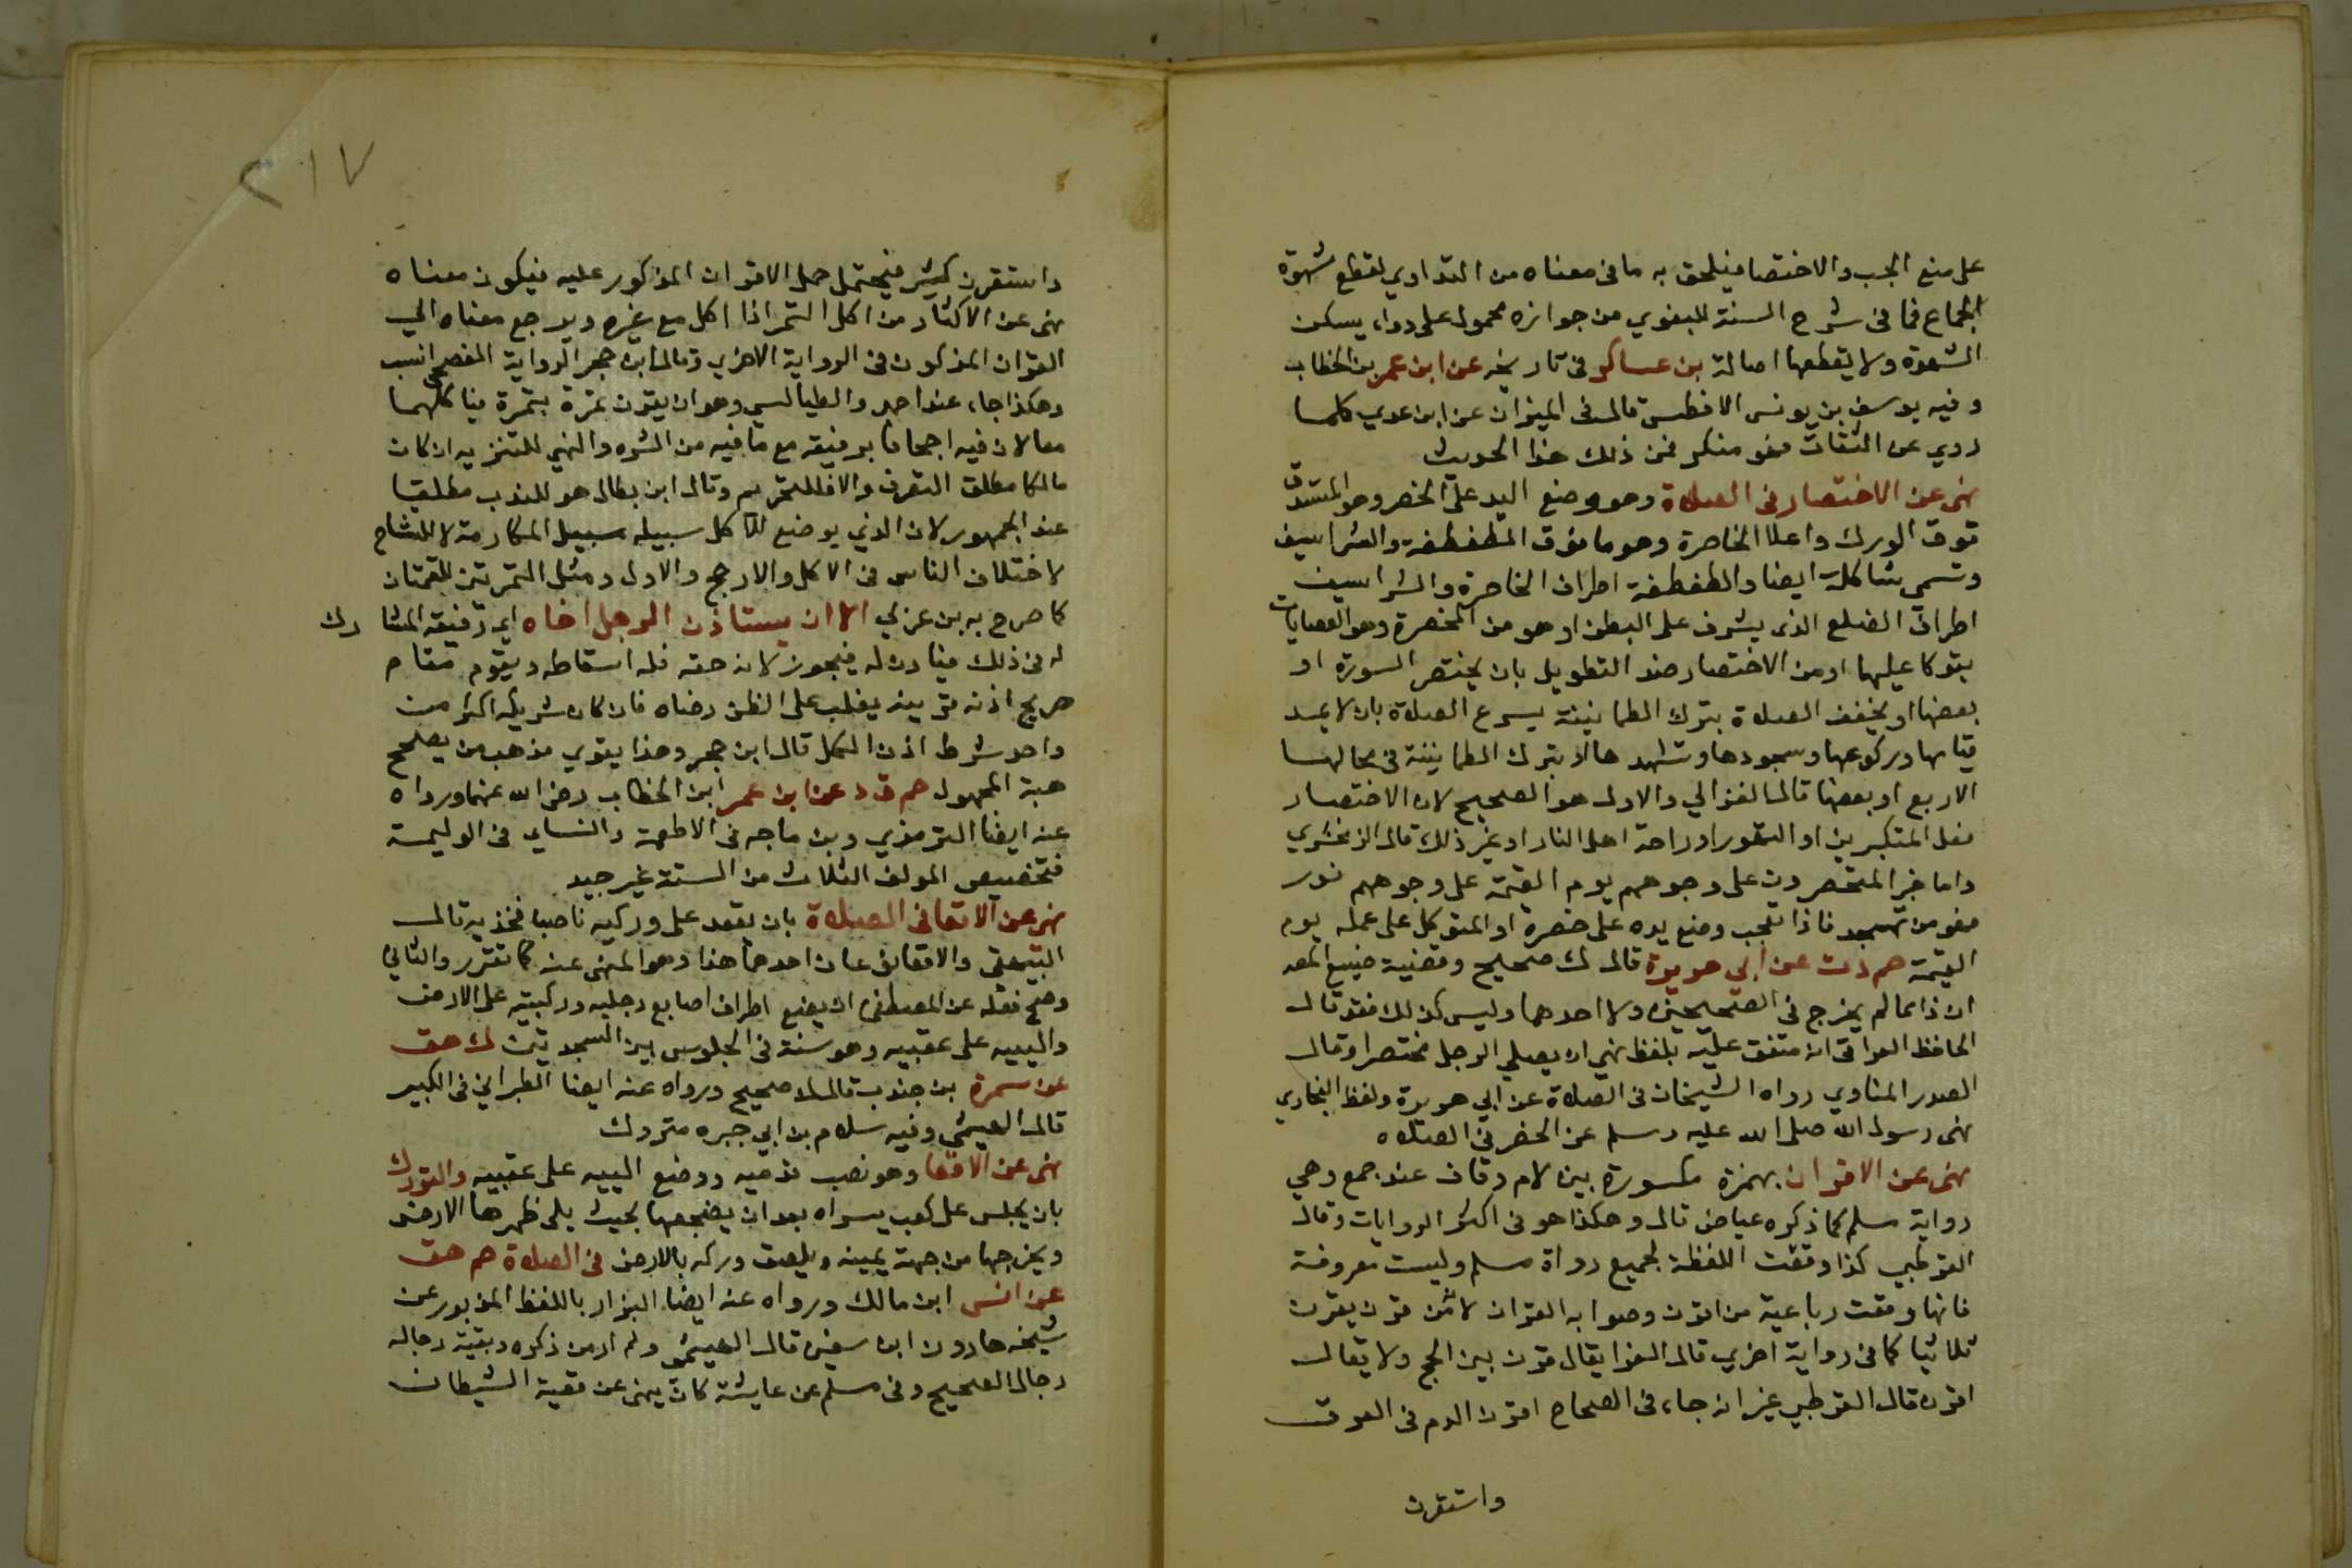 على منع الجب والاختصا فيلحق به ما في معناه من التداوي لقطع شهوة
الجماع فما في شرح السنة للبغوي من جوازه محمول على دواء يسكن
الشهوة ولا يقطعها اصالة بن عساكر في تاريخه عن ابن عمر بن الخطاب
وفيه يوسف بن يونس الافطس قال في الميزان عن ابن عدي كلما
روي عن الثقات فهو منكر فمن ذلك هذا الحديث
نهى عن الاختصار في الصلاة وهو وضع اليد على الخصر وهو المستدق
فوق الورك واعلا الخاصرة وهو ما فوق الطفطفة والشراسيف
وتسمى شاكلة ايضا والطفطفة اطراف الخاصرة والشراسيف
اطراف الضلع الذي يشرف على البطن او هو من المخصرة وهو العصا بان
يتوكا عليها او من الاختصار ضد التطويل بان يختصر السورة او
بعضها او يخفف الصلاة بترك الطمانينة يسرع الصلاة بان لا يمد
قيامها وركوعها وسجودها وتشهدها لا بترك الطمانينة في محالها
الاربع او بعضها قال الغزالي والاول هو الصحيح لان الاختصار
فعل المتكبرين او اليهود او راحة اهل النار او غير ذلك قال الزمخشري
واما خبر المتخصرون على وجوههم يوم القيمة على وجوههم نور
فهو من تهجد فاذا تعب وضع يده على خصره او المتوكل على عمله يوم
القيمة حم د ت عن ابي هريرة قال ك صحيح وقضية صنيع المصـ
ان ذا مما لم يخرج في الصحيحين ولا احدهما وليس كذلك فقد قال
الحافظ العراقي انه متفق عليه بلفظ نهى ان يصلي الرجل مختصرا وقال
الصدر المناوي رواه الشيخان في الصلاة عن ابي هريرة ولفظ البخاري
نهى رسول الله صلى الله عليه وسلم عن الخصر في الصلاه
نهى عن الاقران بهمزة مكسورة بين لام وقاف عند جمع وهي
رواية مسلم كما ذكره عياض قال وهكذا هو في اكثر الروايات وقال
القرطبي كذا وقعت اللفظة لجميع رواة مسلم وليست معروفة
فانها وقعت رباعية من اقرن وصوابه القران لانه من قرن يقرن
ثلاثيا كما في رواية اخرى قال الفرا يقال قرن بين الحج ولا يقال
اقرن قال القرطبي غير انه جاء في الصحاح اقرن الدم في العرق
واستقرن
٢١٧
واستقرن كثر فيحتمل حمل الاقران المذكور عليه فيكون معناه
نهى عن الاكثار من اكل التمر اذا اكل مع غيره ويرجع معناه الى
القران المذكور في الرواية الاخرى وقال ابن حجر الرواية الفصحى انسب
وهكذا جاء عند احمد والطيالسي وهو ان يقرن تمرة بتمرة فياكلهما
معا لان فيه اجحافا برفيقه مع ما فيه من الشره والنهي للتنزيه ان كان
مالكا مطلق التصرف والا فللتحريم وقال ابن بطال هو للندب مطلقا
عند الجمهور لان الذي يوضع للاكل سبيله سبيل المكارمة لا للتشاح
لاختلاف الناس في الاكل والارجح والاول ومثل التمرتين اللقمتان
كما صرح به بن عربي الا ان يستاذن الرجل اخاه اي رفيقه المشارك
له في ذلك فياذن له فيجوز لانه حقه فله اسقاطه ويقوم مقام
صريح اذنه قرينة يغلب على الظن رضاه فان كان شريكه اكثر من
واحد شرط اذن الكل قال ابن حجر وهذا يقوي مذهب من يصحح
هبة المجهول حم ق د عن ابن عمر ابن الخطاب رضى الله عنهما ورواه
عنه ايضا الترمذي وبن ماجه في الاطعمة والنساي في الوليمة
فتخصيص المولف الثلاث من الستة غير جيد
نهى عن الاقعا في الصلاة بان يقعد على وركيه ناصبا فخذيه قال
البيهقي والاقعا نوعان احدهما هذا وهو المنهى عنه كما تقرر والثاني
وصح فعله عن المصطفى ان يضع اطراف اصابع رجليه وركبتيه على الارض
والييه على عقبيه وهو سنة في الجلوس بين السجدتين ك هق
عن سمرة بن جندب قال ك صحيح ورواه عنه ايضا الطبراني في الكبير
قال الهيثمي وفيه سلام بن ابي خبره متروك
نهى عن الاقعا وهو نصب قدميه ووضع الييه على عقبيه والتورك
بان يجلس على كعب يسراه بعد ان يضجعها بحيث يلي ظهرها الارض
ويخرجها من جهة يمينه ويلصق وركه بالارض في الصلاة حم هق
عن انس ابن مالك ورواه عنه ايضا البزار باللفظ المزبور عن
شيخه هارون ابن سفين قال الهيثمي ولم ار من ذكره وبقية رجاله
رجال الصحيح وفي مسلم عن عايشة كان ينهى عن عقبة الشيطان